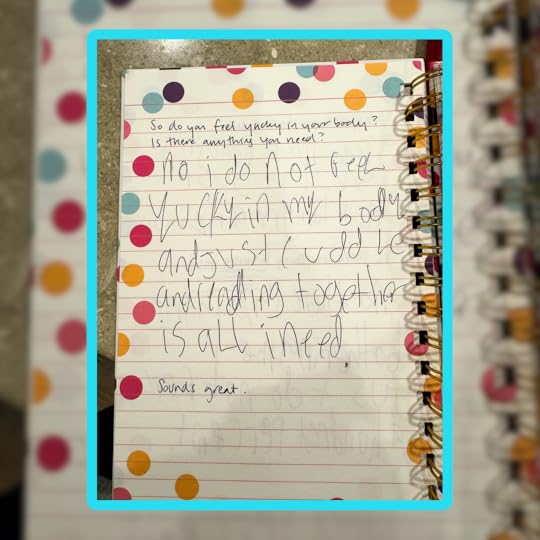 So do you feel yucky in your body?
Is there anything you need?
No i do not feel
yucky in my body
and just cuddle
and reading together
is all i need.
Sounds great.